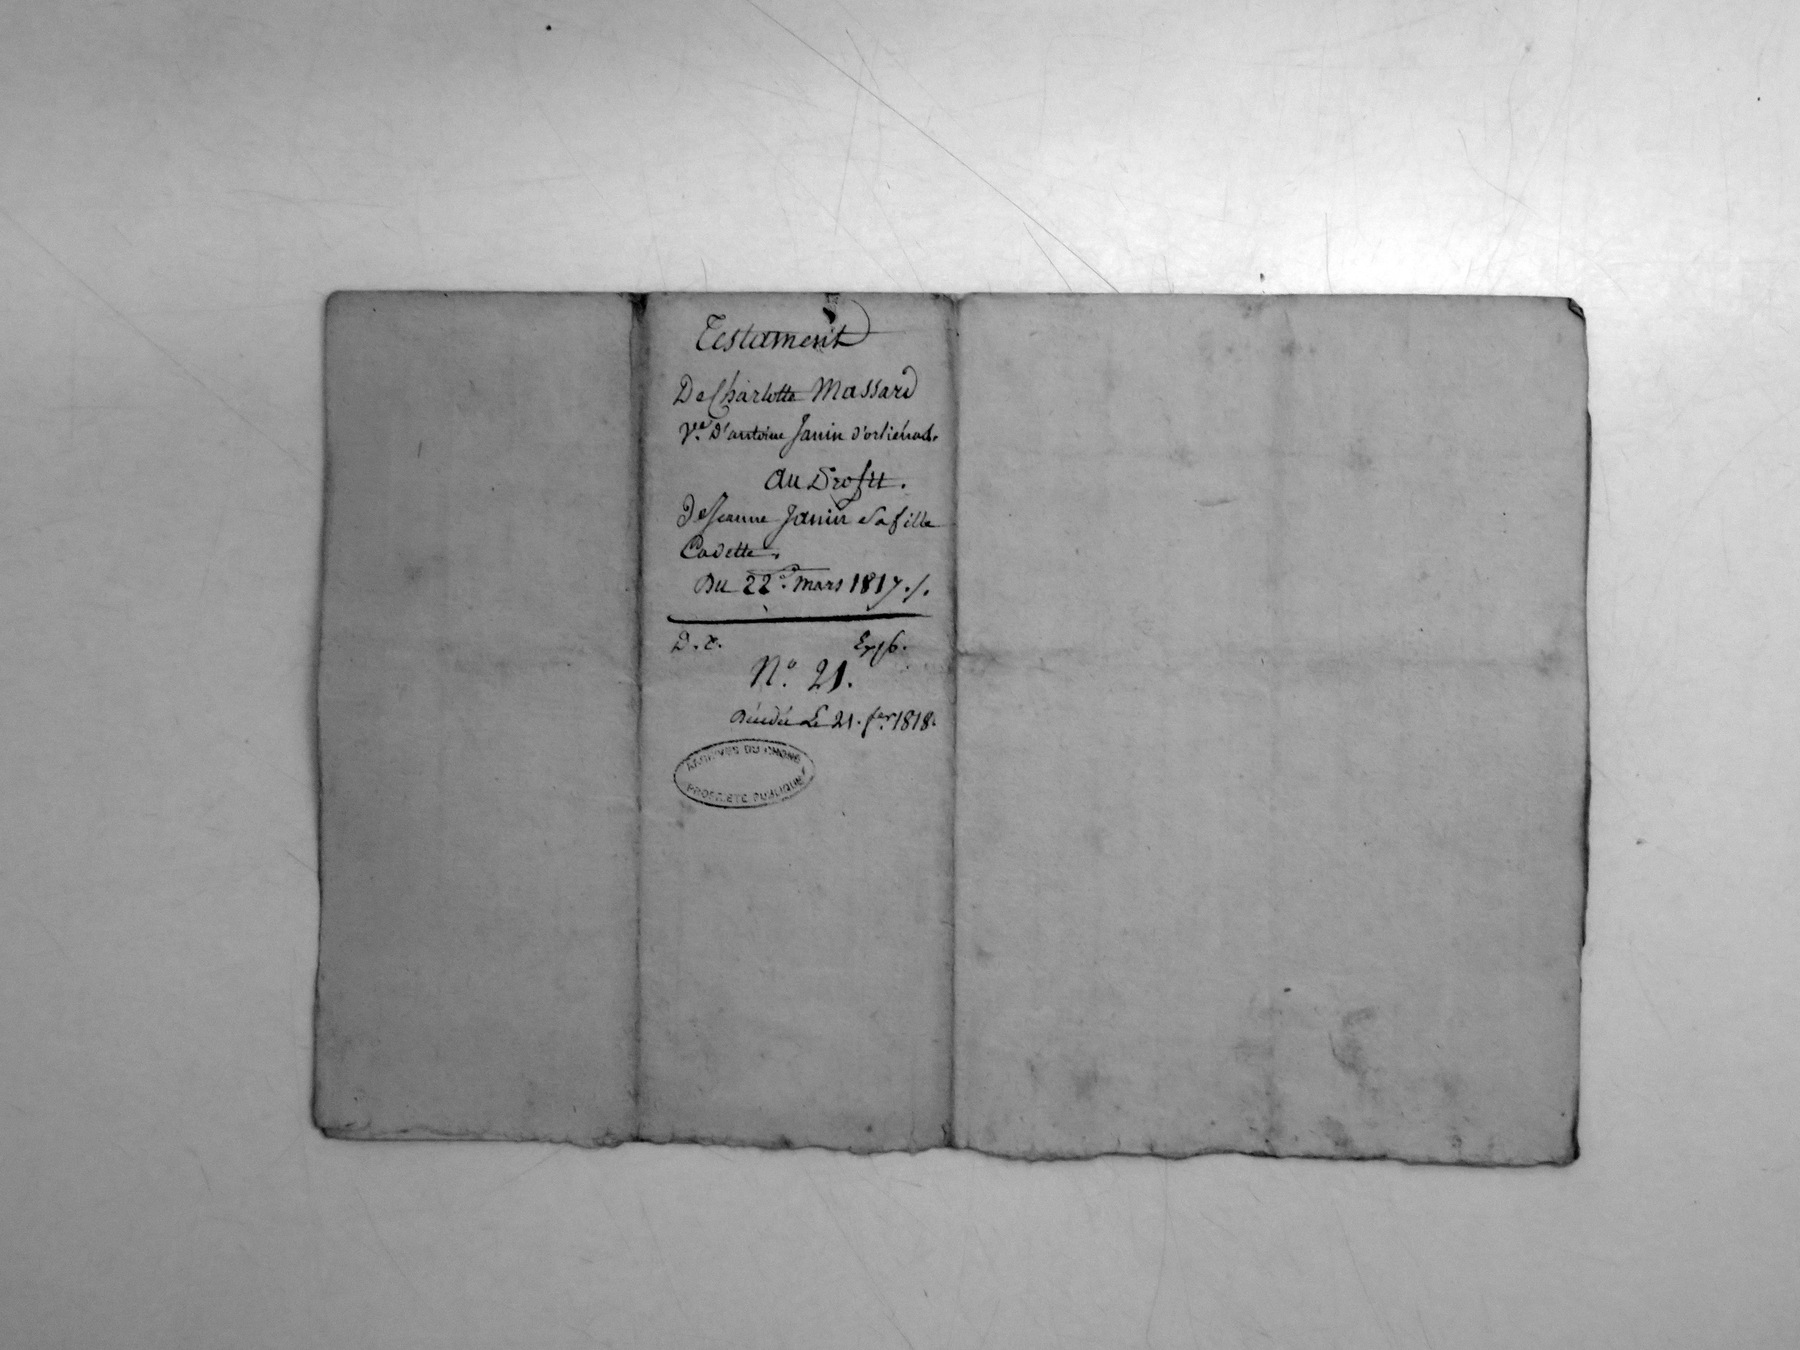 Testament
De Charlotte Massard
Ve. D'antoine Janin d'orliénas.
Au Profit.
De Jeanne Janin sa fille
Cadette.
Du 22e. mars 1817./.
D. E. Exp.
No. 21.
Décédée le 21. fer. 1818.
ARCHIVES DU RHONE
PROPRIETE PUBLIQUE